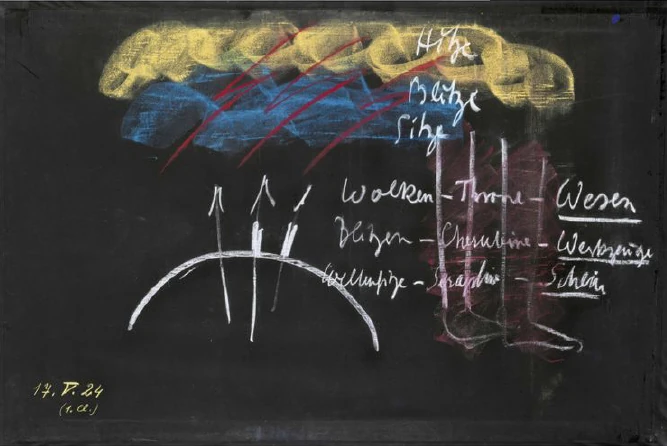 Hitze
Blitze
Sitze
Wolken – Throne – Wesen
Blitzen – Cherubine – Werkzeuge
– Seraphine – Schein
17. V. 24
(1. Cl.)